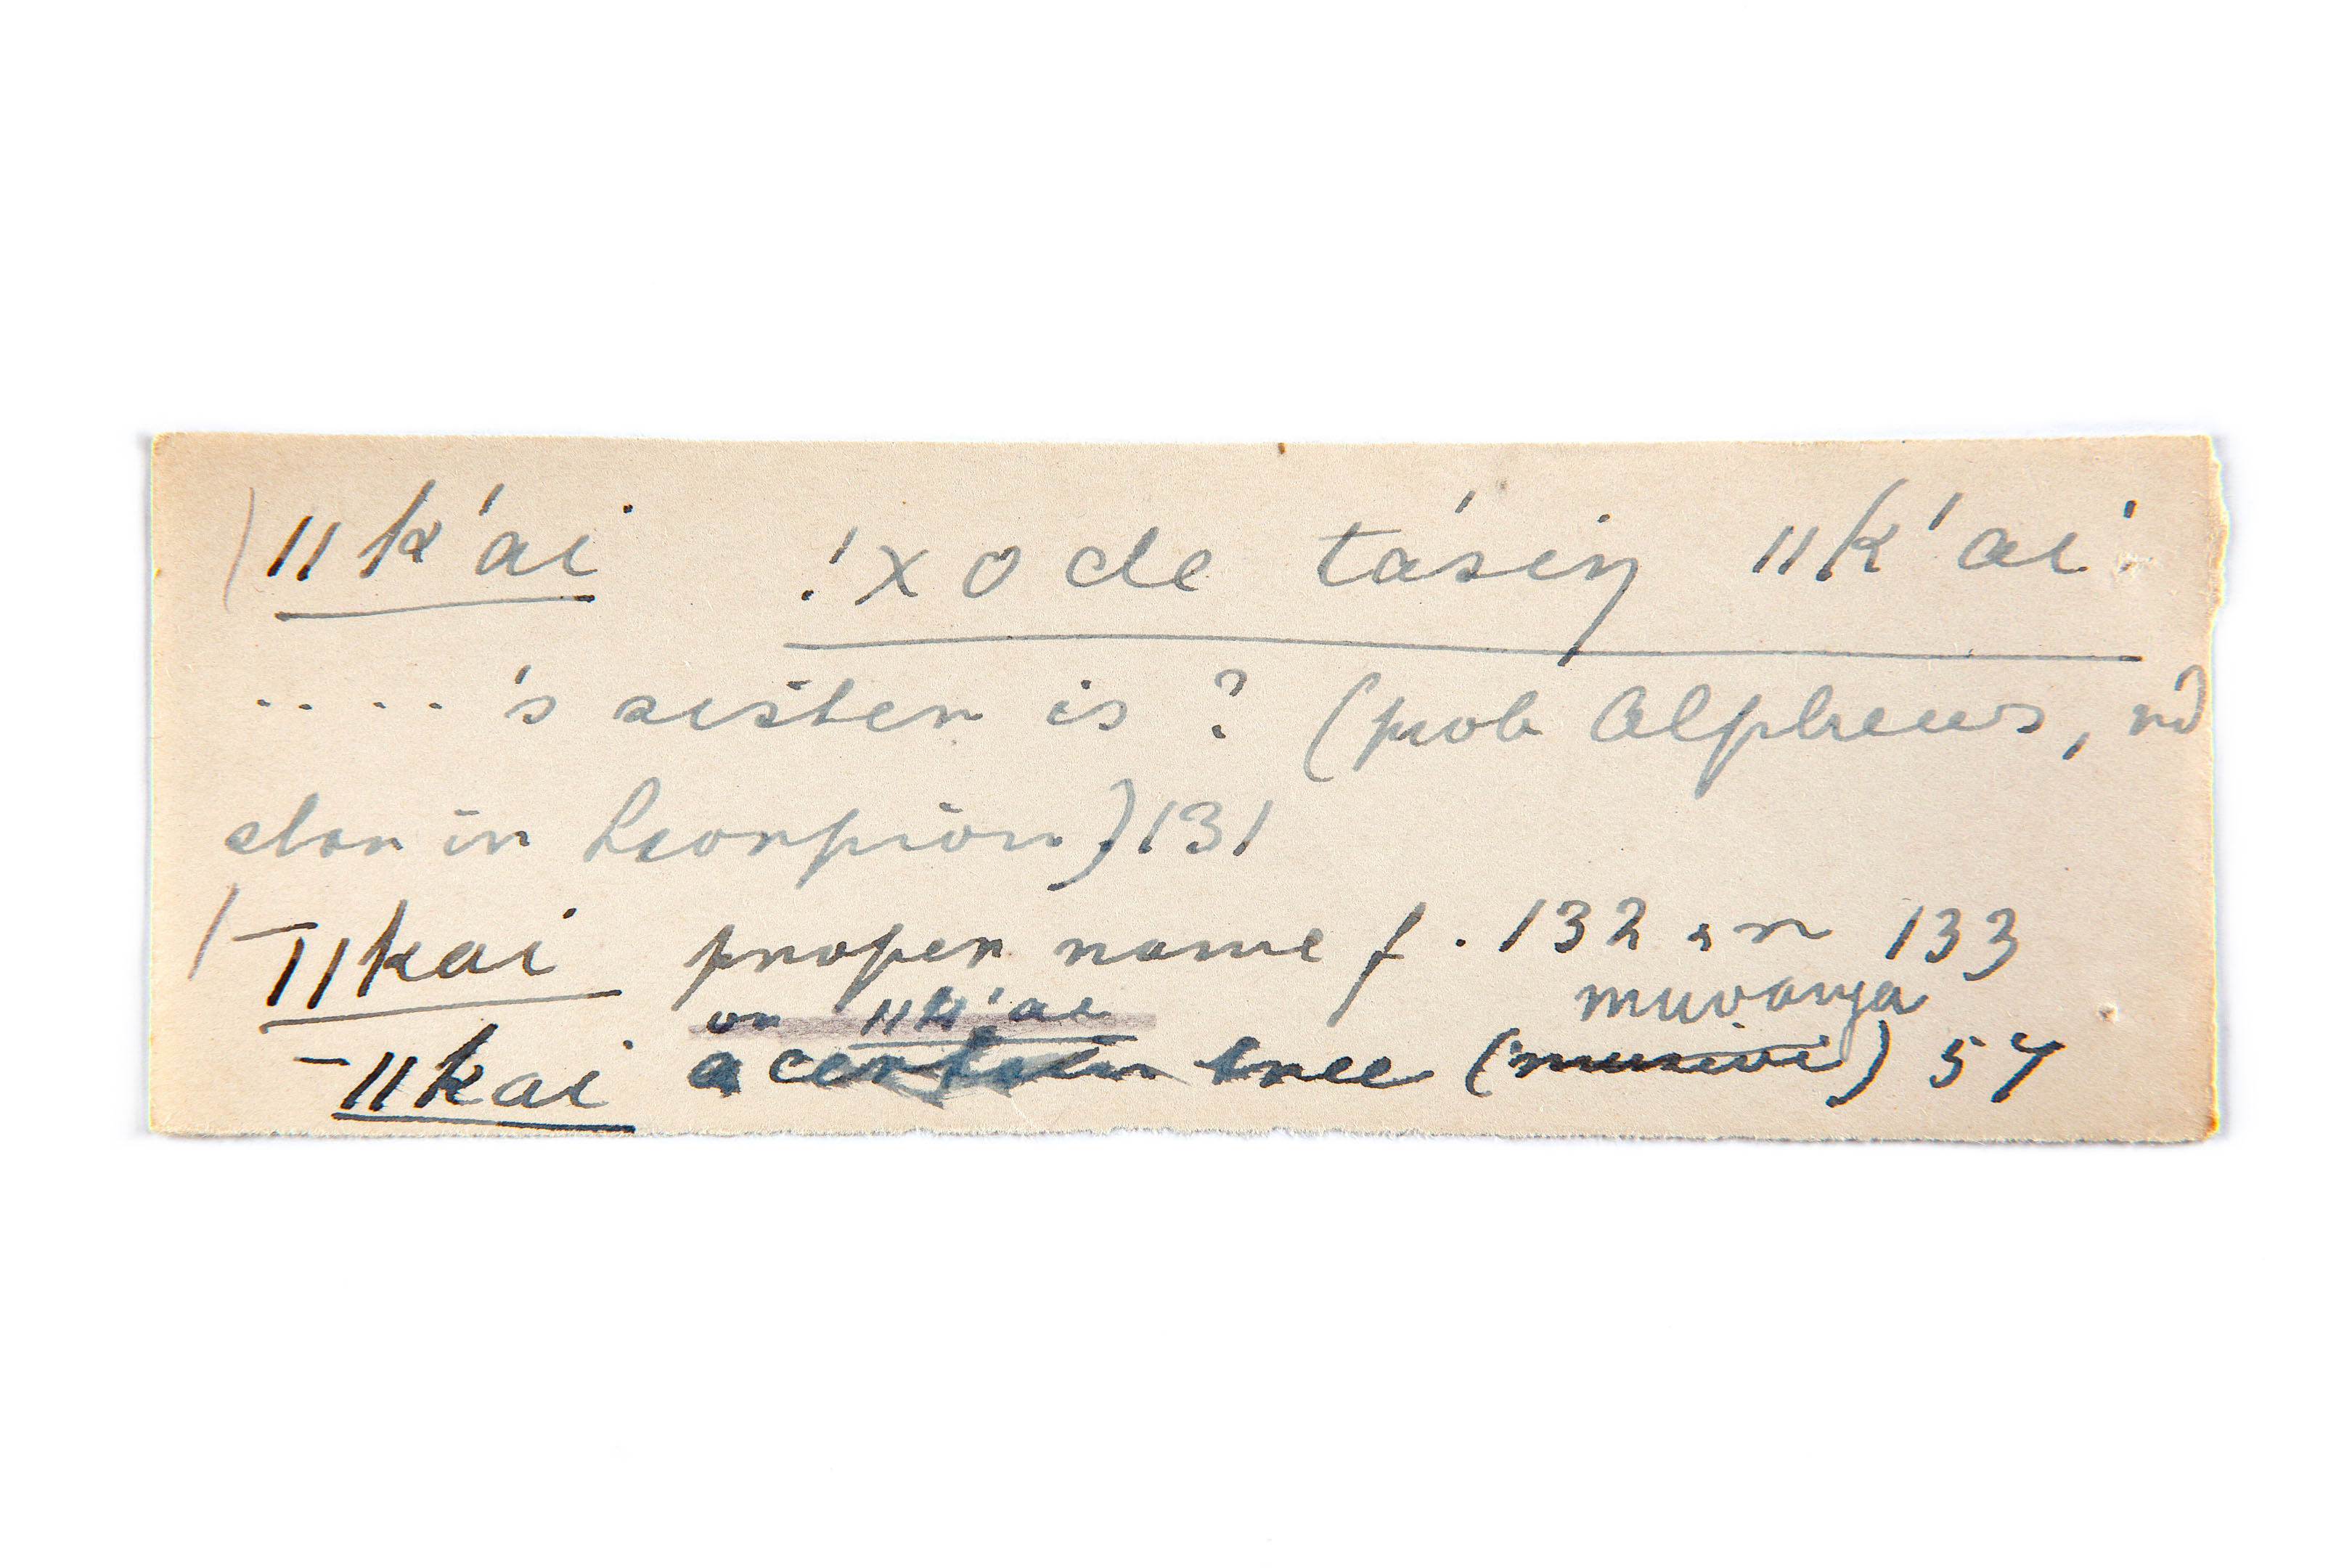 ǁk'ai !xo de tásiŋ ǁk'ai
....'s sister is ? (prob Alpheus, rd
star in Scorpion) 131
‾ǁkai proper name f. 132 133
or ǁk'ae muvanja
‾ǁkai a certain tree (musivi) 57